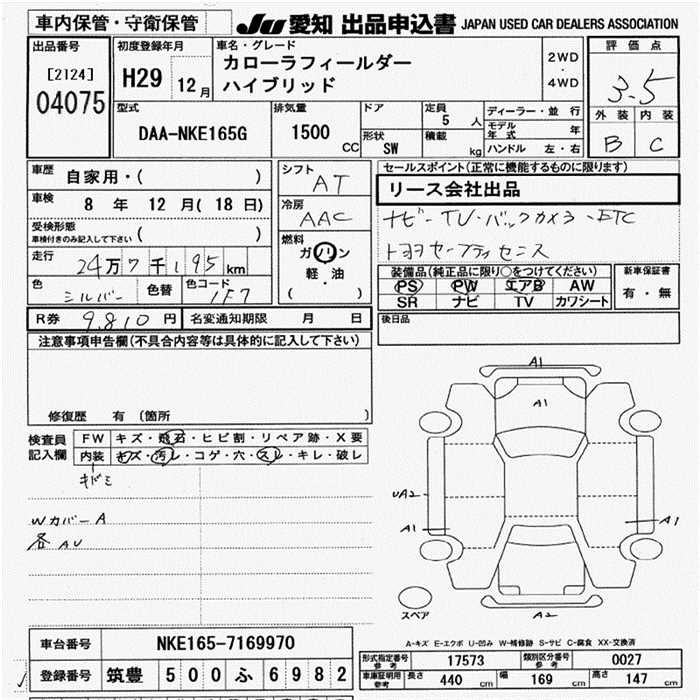 車内保管・守衛保管
JU 愛知 出品申込書 JAPAN USED CAR DEALERS ASSOCIATION
出品番号
[2124]
04075
初度登録年月
H29 12月
車名・グレード
カローラフィールダー
ハイブリッド
2WD
・
4WD
評価点
3.5
外装 内装
B C
型式
DAA-NKE165G
排気量
1500 CC
ドア
形状
SW
定員
5 人
積載
kg
ディーラー・並行
モデル年式 年
ハンドル 左・右
車歴 自家用・( )
車検 8 年 12 月( 18 日)
受検形態
車検付きのみ記入して下さい ( )
走行 24万7千195km
色 シルバー 色替 色コード 1F7
シフト
AT
冷房
AAC
燃料
ガソリン
軽・油
( )
セールスポイント(正常に機能するものに限ります)
リース会社出品
ナビ・TV・バックカメラ・ETC
トヨタセーフティセンス
装備品(純正品に限り○をつけてください)
PS PW エアB AW
SR ナビ TV カワシート
新車保証書
有・無
R券 9,810 円 名変通知期限 月 日
後日品
注意事項申告欄(不具合内容等は具体的に記入して下さい)
修復歴 有 (箇所 )
検査員
記入欄
FW キズ・飛石・ヒビ割・リペア跡・X要
内装 キズ・汚レ・コゲ・穴・スレ・キレ・破レ
キドミ
Wカバー A
各 AU
A1
A1
UA2
A1
A1
スペア
A2
A-キズ E-エクボ U-凹み W-補修跡 S-サビ C-腐食 XX-交換済
車台番号 NKE165-7169970
登録番号 筑豊 500 ふ 6982
型式指定番号 参考 17573 類別区分番号 参考 0027
車庫証明用 参考 長さ 440 cm 幅 169 cm 高さ 147 cm